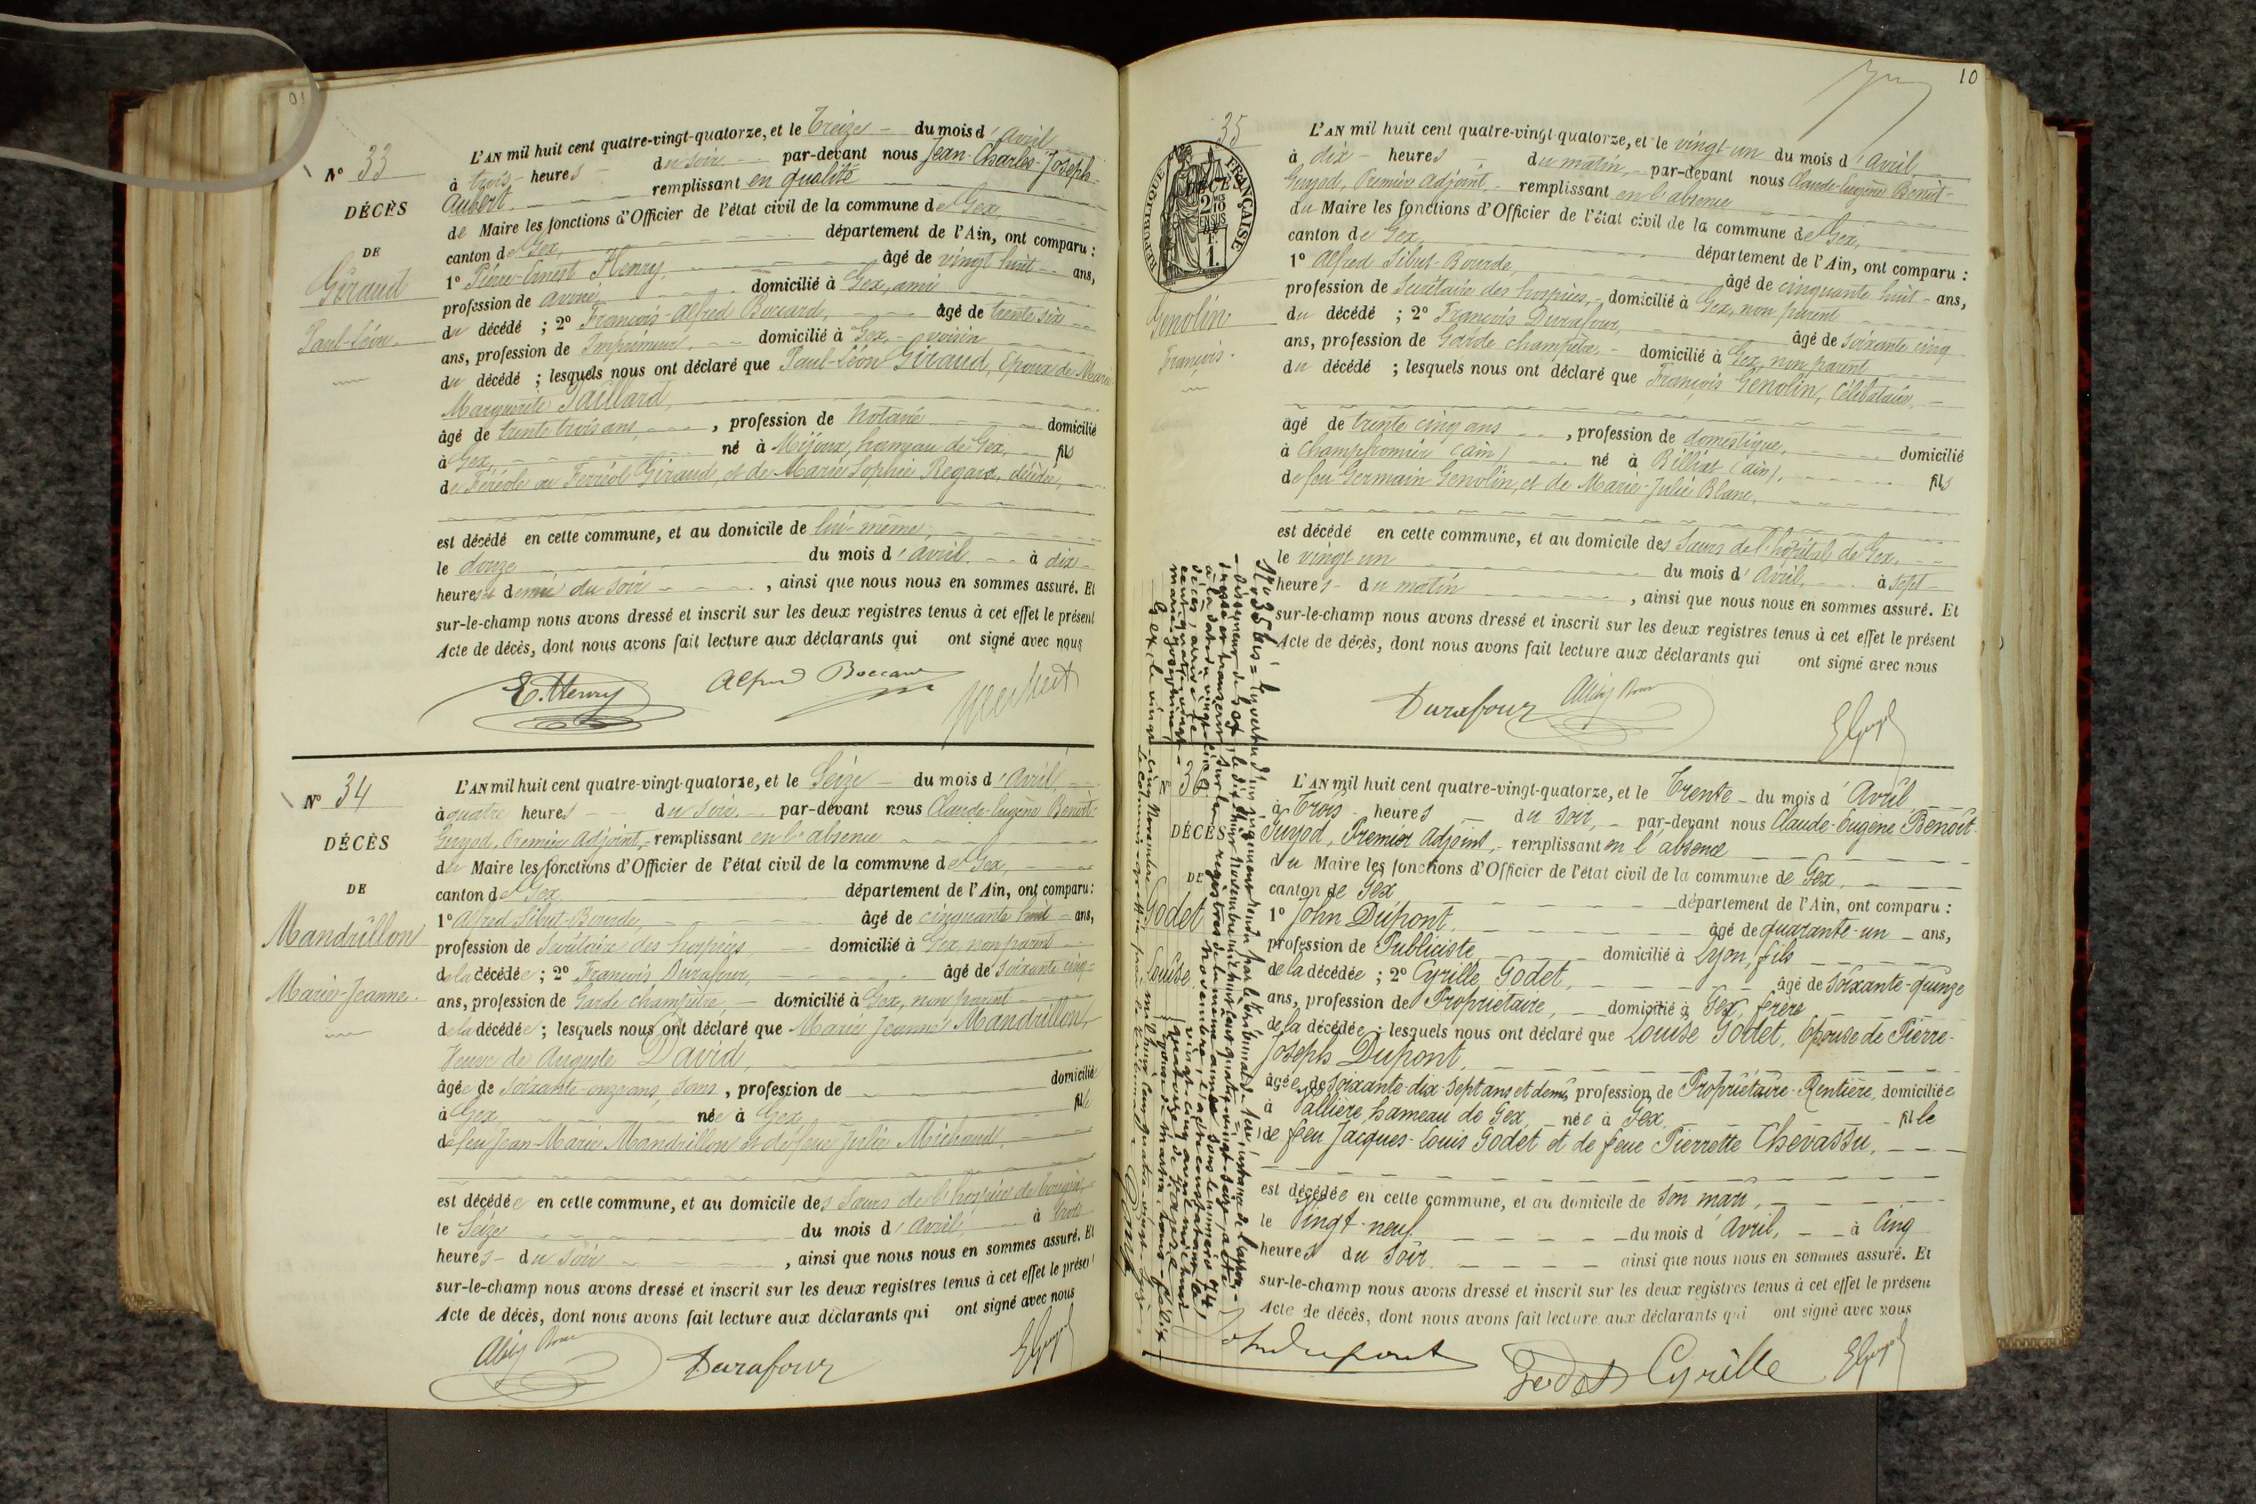 N° 33
DÉCÈS
DE
Giraud
Paul-Léon.
L'AN mil huit cent quatre-vingt-quatorze, et le Treize du mois d'avril
à trois heures du soir par-devant nous Jean-Charles-Joseph
Aubert remplissant en qualité
de Maire les fonctions d'Officier de l'état civil de la commune de Gex,
canton de Gex, département de l'Ain, ont comparu :
1° Pierre-Ernest Henry, âgé de vingt huit ans,
profession de avoué domicilié à Gex, ami
du décédé ; 2° François-Alfred Boccard, âgé de trente six
ans, profession de Imprimeur, domicilié à Gex, voisin
du décédé ; lesquels nous ont déclaré que Paul-Léon Giraud, Époux de Marie
Marguerite Paillard,
âgé de trente trois ans, profession de notaire domicilié
à Gex, né à Mijoux, hameau de Gex, fils
de Féréole ou Ferréol Giraud, et de Marie Sophie Regard, décédée,
est décédé en cette commune, et au domicile de lui-même,
le douze du mois d'avril à dix
heures et demie du soir, ainsi que nous nous en sommes assuré. Et
sur-le-champ nous avons dressé et inscrit sur les deux registres tenus à cet effet le présent
Acte de décès, dont nous avons fait lecture aux déclarants qui ont signé avec nous
E. Henry Alfred Boccard
N° 34
DÉCÈS
DE
Mandrillon
Marie-Jeanne.
L'AN mil huit cent quatre-vingt-quatorze, et le Seize du mois d'avril,
à quatre heures du soir, par-devant nous Claude-Eugène Benoît-
Guyod, Premier Adjoint, remplissant en l'absence
du Maire les fonctions d'Officier de l'état civil de la commune de Gex,
canton de Gex département de l'Ain, ont comparu :
1° Alfred Sibut-Bourde, âgé de cinquante huit ans,
profession de Secrétaire des hospices, domicilié à Gex, non parent
de la décédée ; 2° François Durafour, âgé de soixante cinq
ans, profession de Garde champêtre, domicilié à Gex, non parent
de la décédée ; lesquels nous ont déclaré que Marie Jeanne Mandrillon,
Veuve de Auguste David,
âgée de soixante-onze ans, sans, profession de domiciliée
à Gex, née à Gex, fille
de feu Jean-Marie Mandrillon et de feue Julie Michaud,
est décédée en cette commune, et au domicile des Sœurs de l'hospice de
le Seize du mois d'avril, à trois
heures du soir, ainsi que nous nous en sommes assuré. Et
sur-le-champ nous avons dressé et inscrit sur les deux registres tenus à cet effet le présent
Acte de décès, dont nous avons fait lecture aux déclarants qui ont signé avec nous
Durafour
10
35
RÉPUBLIQUE FRANÇAISE
DÉCÈS
2/10
EN SUS
1.
Genolin
François.
L'AN mil huit cent quatre-vingt-quatorze, et le vingt un du mois d'avril,
à dix heures du matin, par-devant nous Claude-Eugène Benoît-
Guyod, Premier Adjoint, remplissant en l'absence
du Maire les fonctions d'Officier de l'état civil de la commune de Gex,
canton de Gex, département de l'Ain, ont comparu :
1° Alfred Sibut-Bourde, âgé de cinquante huit ans,
profession de Secrétaire des hospices, domicilié à Gex, non parent
du décédé ; 2° François Durafour, âgé de soixante cinq
ans, profession de Garde champêtre, domicilié à Gex, non parent
du décédé ; lesquels nous ont déclaré que François Genolin, Célibataire,
âgé de trente cinq ans, profession de domestique, domicilié
à Champfromier (Ain) né à Billiat (Ain), fils
de feu Germain Genolin, et de Marie-Julie Blanc,
est décédé en cette commune, et au domicile des Sœurs de l'hôpital de Gex,
le vingt un du mois d'avril, à sept
heures du matin, ainsi que nous nous en sommes assuré. Et
sur-le-champ nous avons dressé et inscrit sur les deux registres tenus à cet effet le présent
Acte de décès, dont nous avons fait lecture aux déclarants qui ont signé avec nous
Durafour
N° 35 bis = En vertu d'un jugement rendu par le tribunal de 1ère instance de l'arron-
N° 36
DÉCÈS
DE
Godet
Louise
L'AN mil huit cent quatre-vingt-quatorze, et le Trente du mois d'Avril
à Trois heures du soir, par-devant nous Claude-Eugène Benoît-
Guyod, Premier Adjoint, remplissant en l'absence
du Maire les fonctions d'Officier de l'état civil de la commune de Gex,
canton de Gex département de l'Ain, ont comparu :
1° John Dupont, âgé de quarante-un ans,
profession de Publiciste, domicilié à Lyon, fils
de la décédée ; 2° Cyrille Godet, âgé de soixante-quinze
ans, profession de Propriétaire, domicilié à Gex, frère
de la décédée ; lesquels nous ont déclaré que Louise Godet, Épouse de Pierre-
Joseph Dupont,
âgée de soixante-dix-sept ans et demi, profession de Propriétaire-Rentière, domiciliée
à Vallière, hameau de Gex, née à Gex, fille
de feu Jacques-Louis Godet et de feue Pierrette Chevassu,
est décédée en cette commune, et au domicile de son mari,
le Vingt-neuf du mois d'Avril, à Cinq
heures du soir, ainsi que nous nous en sommes assuré. Et
sur-le-champ nous avons dressé et inscrit sur les deux registres tenus à cet effet le présent
Acte de décès, dont nous avons fait lecture aux déclarants qui ont signé avec nous
John Dupont Godet Cyrille